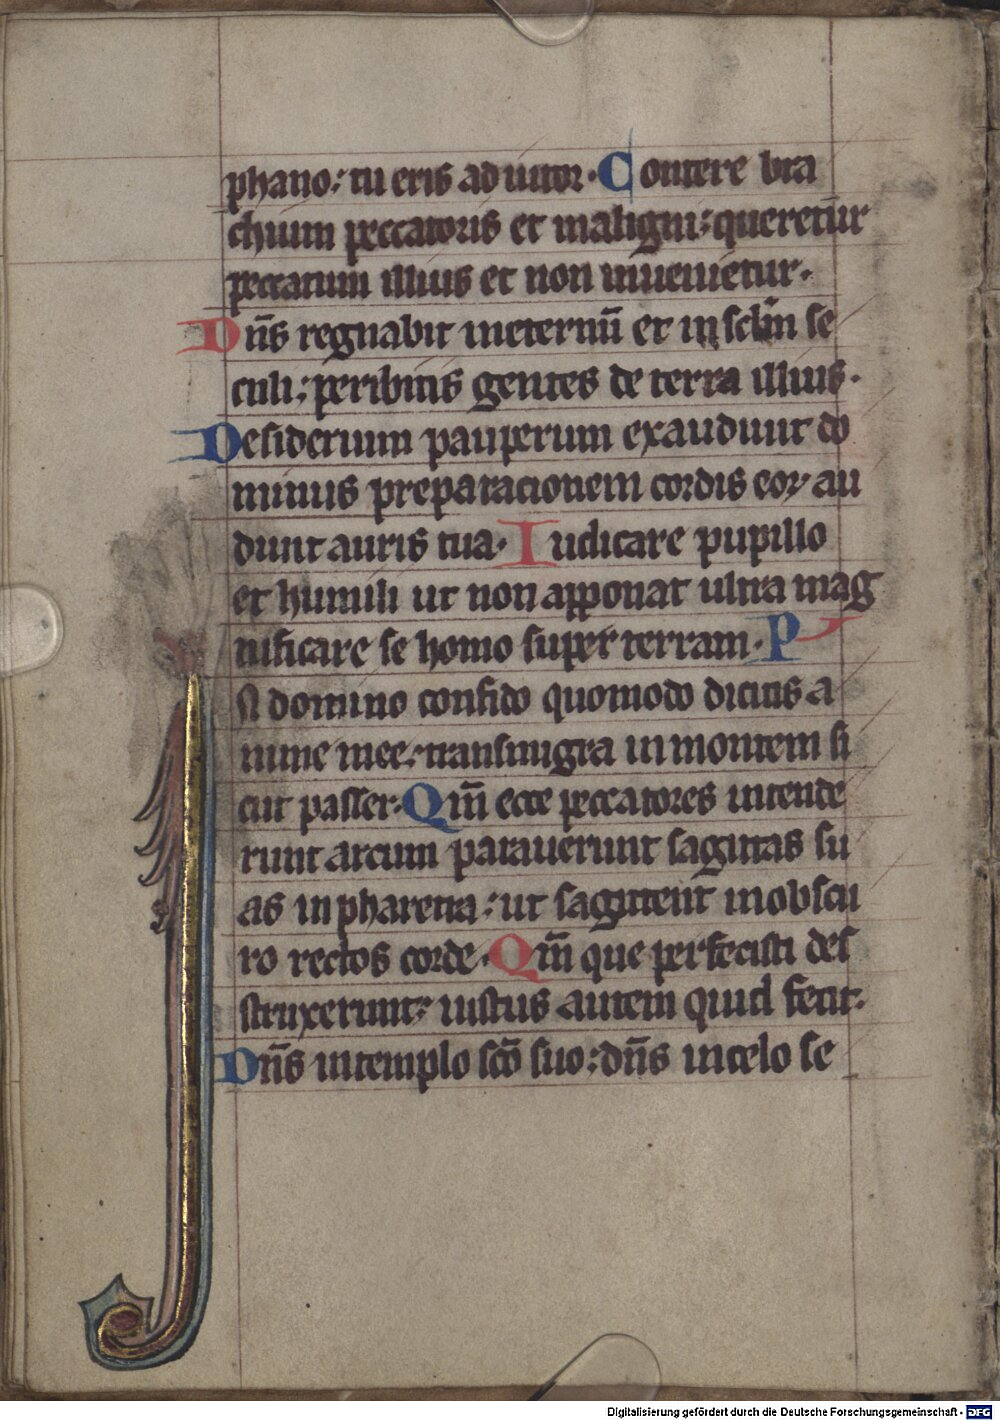 phano: tu eris adiutor. Contere bra
chium peccatoris et maligni: queretur
peccatum illius et non inuenietur.
Dn̄s regnabit ineternū et in sclm̄ se
culi: peribitis gentes de terra illius.
Desiderium pauperum exaudiuit do
minus preparacionem cordis eoꝝ au
diuit auris tua. Iudicare pupillo
et humili ut non apponat ultra mag
nificare se homo super terram. P
IN domino confido quomodo dicitis a
nime mee: transmigra in montem si
cut passer. Qm̄ ecce peccatores intende
runt arcum parauerunt sagittas su
as in pharetra: ut sagittent inobscu
ro rectos corde. Qm̄ que perfecisti des
truxerunt: iustus autem quid fecit.
Dn̄s intemplo scō suo: dn̄s incelo se
Digitalisierung gefördert durch die Deutsche Forschungsgemeinschaft - DFG